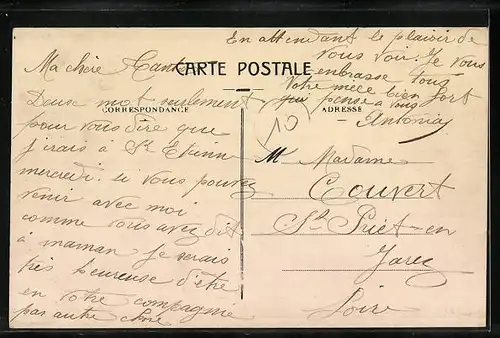 Ma chère Tante
Deux mot seulement
pour vous dire que
j'irais à St Etienne
mercredi. si vous pouvez
venir avec moi
comme vous avez dit
à maman je serais
très heureuse d'être
en votre compagnie
pas autre chose
En attendant le plaisir de
vous voir. Je vous
embrasse tous
Votre nièce bien fort
qui pense à vous
Antonia
CARTE POSTALE
CORRESPONDANCE
ADRESSE
10
M Madame
Couvert
St Priet-en
Jarez
Loire